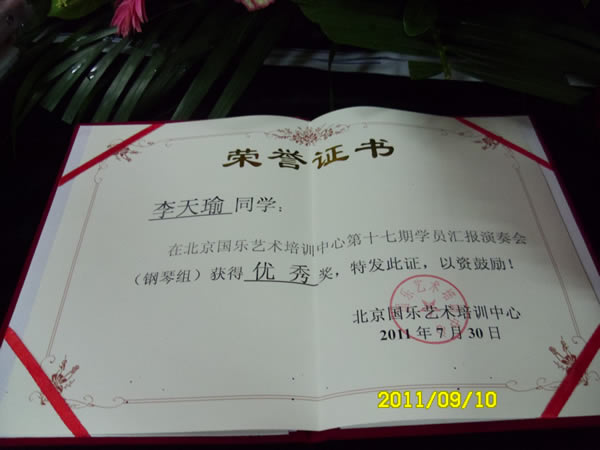 荣誉证书
李天瑜 同学：
在北京国乐艺术培训中心第十七期学员汇报演奏会
（钢琴组）获得 优 秀 奖，特发此证，以资鼓励！
北京国乐艺术培训中心
2011 年 7 月 30 日
2011/09/10